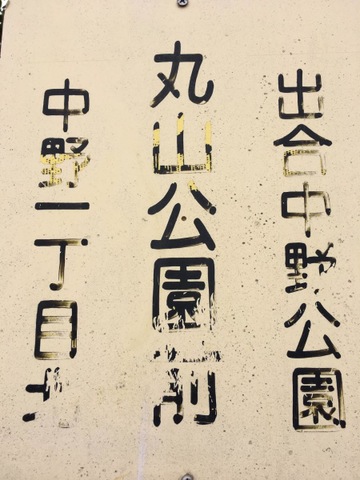 出合中野公園
丸山公園前
中野一丁目